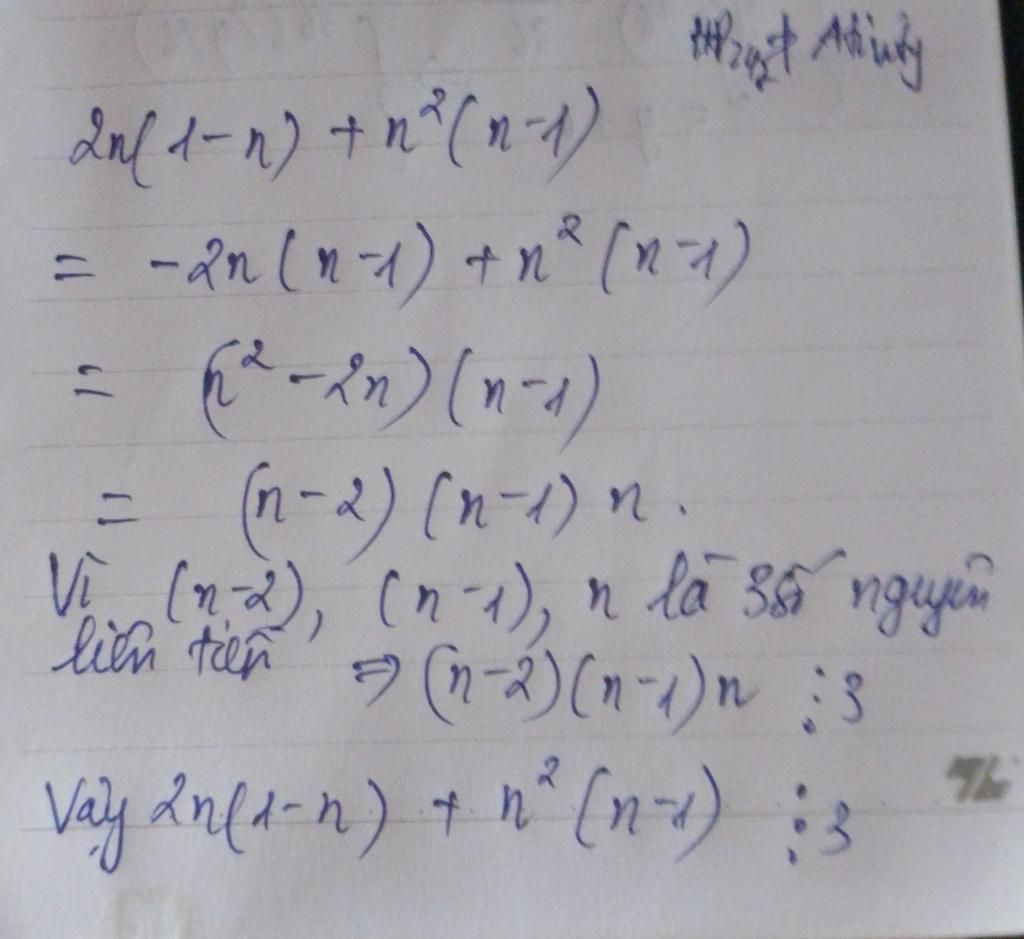 2n(1-n) + n²(n-1)
= -2n(n-1) + n²(n-1)
= (n²-2n)(n-1)
= (n-2)(n-1)n.
Vì (n-2), (n-1), n là 3 số nguyên
liên tiếp ⇒ (n-2)(n-1)n ⋮ 3
Vậy 2n(1-n) + n²(n-1) ⋮ 3